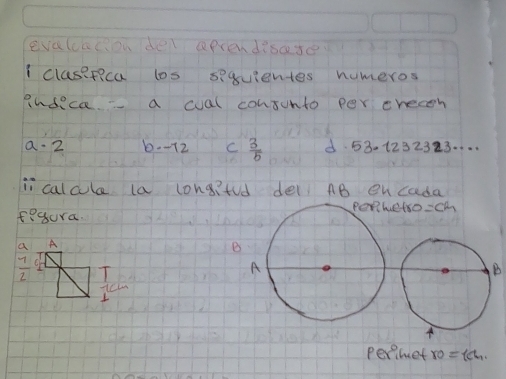 evalcacion del aprendisaje
i clasifica los siguientes numeros
indica a cual conjunto per enecen
a. 2 b. -12 c 3/5 d. 53.1232323....
ii calcula la longitud del AB en cada
figura.
Perimetro = cm
a A B
1/2
A B
1cm
Perimetro = 1cm.